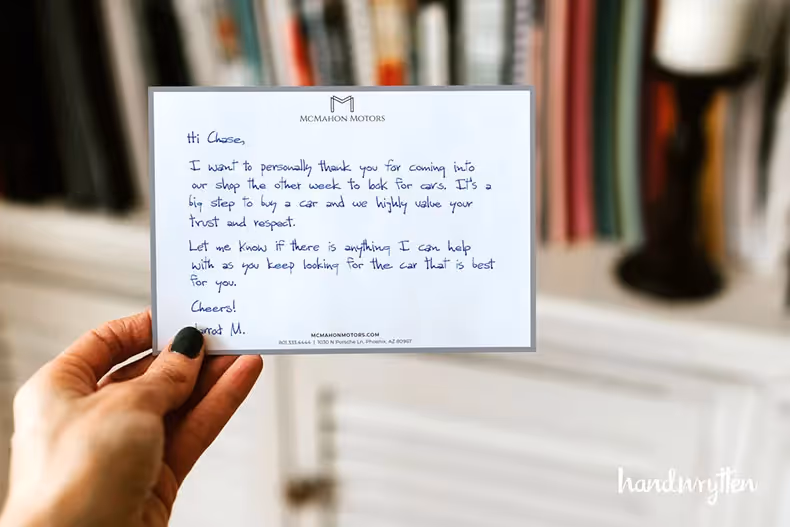 McMahon Motors
Hi Chase,
I want to personally thank you for coming into
our shop the other week to look for cars. It's a
big step to buy a car and we highly value your
trust and respect.
Let me know if there is anything I can help
with as you keep looking for the car that is best
for you.
Cheers!
M.
MCMAHONMOTORS.COM
801.333.4444 | 1030 N Porsche Ln, Phoenix, AZ 80907
handwrytten